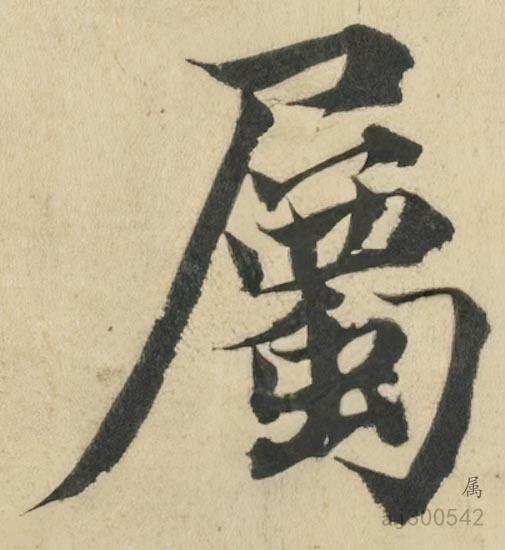 屬
属
aj300542